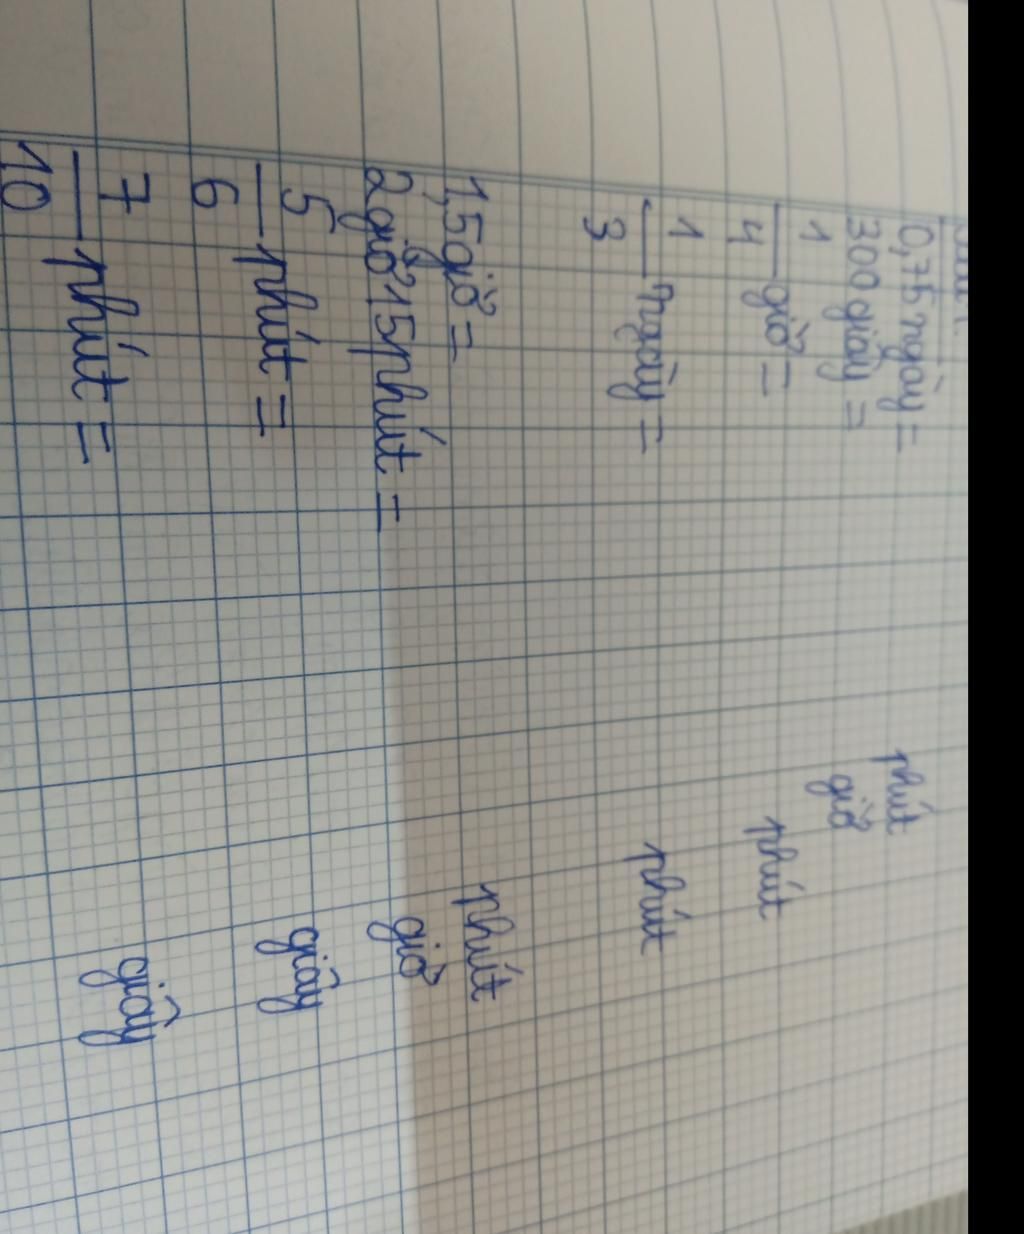 0,75 ngày = phút
300 giây = giờ
1/4 giờ = phút
1/3 ngày = phút
1,5 giờ = phút
2 giờ 15 phút = giờ
5/6 phút = giây
7/10 phút = giây